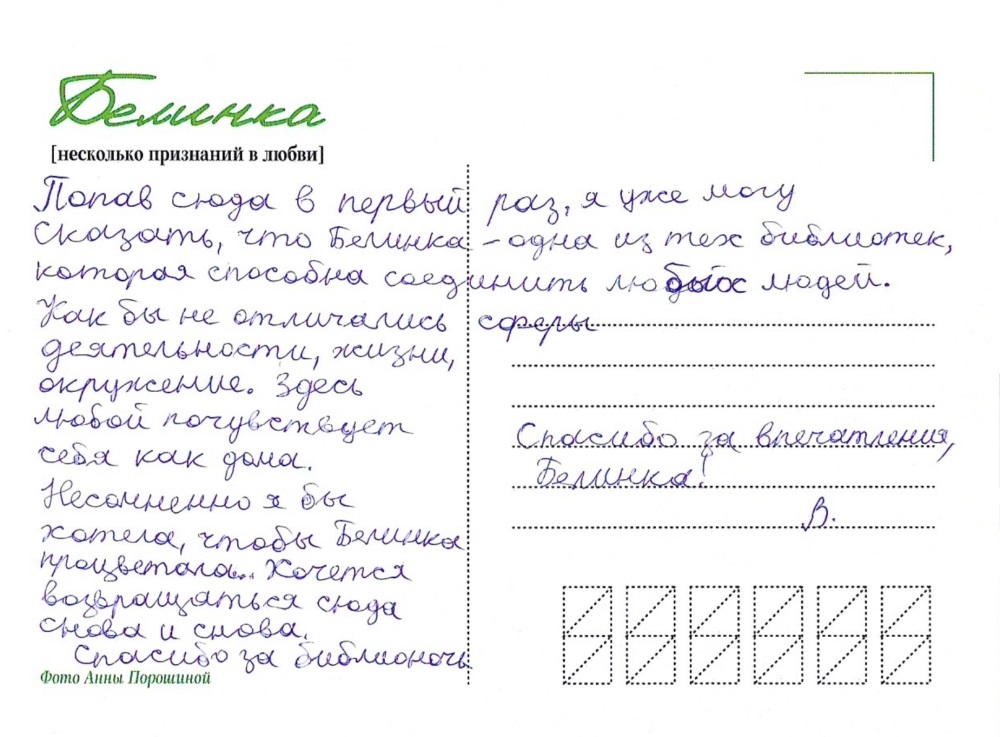 Белинка
[несколько признаний в любви]
Попав сюда в первый раз, я уже могу
сказать, что Белинка – одна из тех библиотек,
которая способна соединить любых людей.
Как бы не отличались сферы
деятельности, жизни,
окружение. Здесь
любой почувствует
себя как дома.
Несомненно я бы
хотела, чтобы Белинка
процветала... Хочется
возвращаться сюда
снова и снова.
Спасибо за библионочь
Спасибо за впечатления,
Белинка!
В.
Фото Анны Порошиной